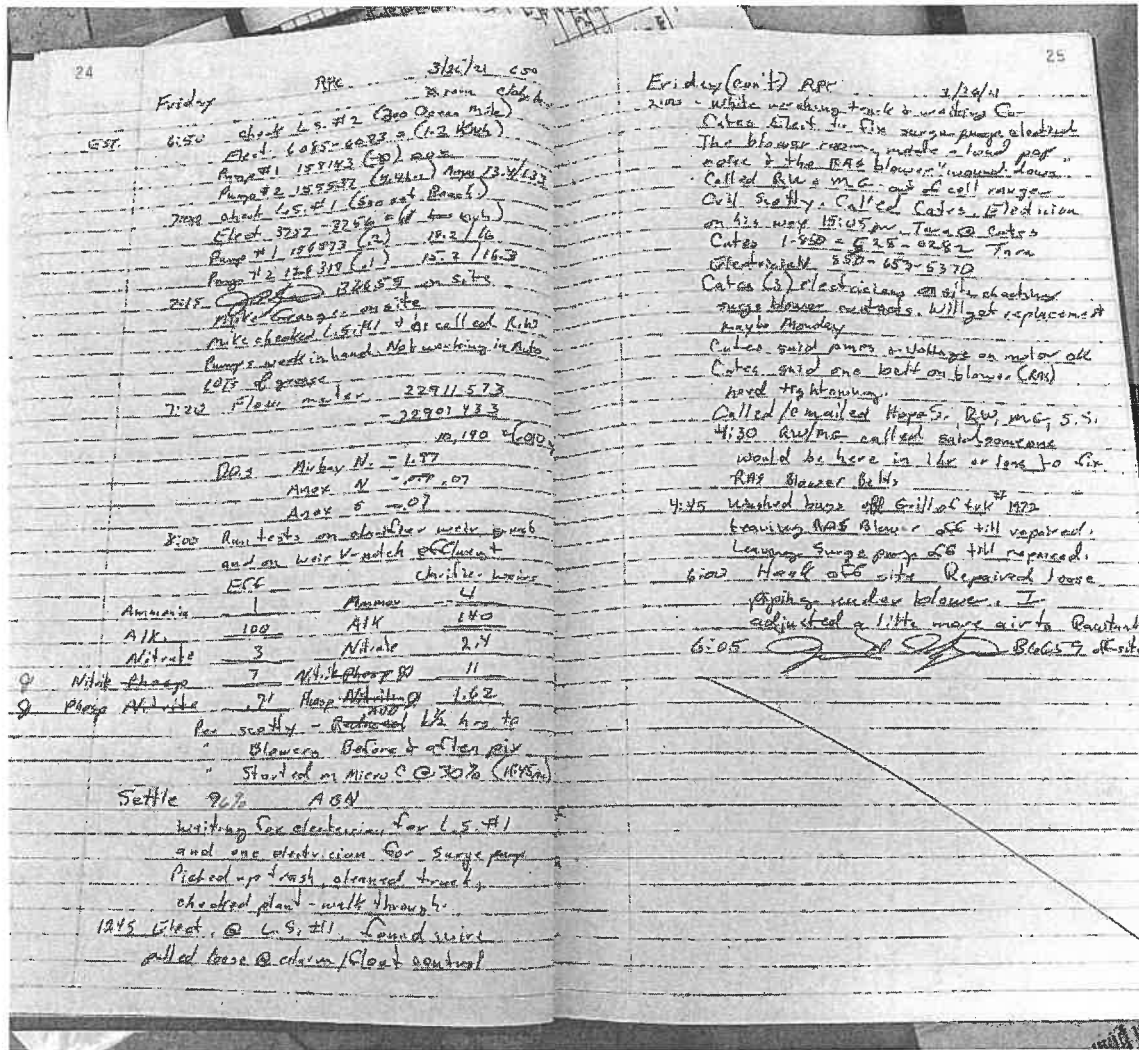 24
Friday RPC 3/26/21 650
EST. 6:50 Check L.S. #2 (200 Ocean Mile)
Elect 6085 - 6073 = (12 Kwh)
Pump #1 158143
Pump #2
7:00 check L.S. #1
Elect 3272 - 3256 =
Pump #1 (.2) 15.2 / 16
Pump #2 (.1) 15.2 / 16.3
7:15 on site
Mike Granger on site
Mike checked L.S. #1 & he called RW
Pumps work in hand. Not working in Auto
LOTS of grease
7:20 Flow meter 22911573
- 22901433
10,140
D.O.s Airbay N. = 1.97
Anox N .07
Anox S - .07
8:00 Run tests on clarifier weir
and on weir V-notch effluent
Eff Clarifier weirs
Ammonia 1 Ammon 4
Alk. 100 Alk 140
Nitrate 3 Nitrate 2.4
Nitrite Phosp 7 Nitrite Phosp 11
Phosp Nitrite .71 Phosp Nitrite 1.62
Per scotty - Reduced add 1/2 hrs to
" Blowers Before & after
" Started Micro C @ 30%
Settle 96% AGN
waiting for electrician, for L.S. #1
and one electrician for surge pump
Picked up trash, cleaned truck,
checked plant - walk through.
1245 Elect. @ L.S. #1, found wire
pulled loose @ alarm / float control
25
Friday (con't) RPC 3/26/21
2:00 - While washing truck & waiting for
Cates Elect to fix surge pump electrical
The blower room made a loud pop
noise & the RAS blower "wound down"
Called RW & MG - out of cell range
Call Scotty. Called Cates, Electrician
on his way 15:05 pm. Tara @ Cates
Cates 1-850 - 528 - 0282 Tara
Electrician 850 - 657 - 5370
Cates (3) electricians on site checking
surge blower contacts. Will get replacement
maybe Monday
Cates said amps & voltage on motor ok
Cates said one belt on blower (RAS)
need tightening.
Called / emailed Hope S., RW, MG, S.S.
4:30 RW/MG called said someone
would be here in 1 hr or less to fix
RAS Blower Belts
4:45 Washed bugs off Grill of trk # 1972
Leaving RAS Blower off till repaired.
Leaving Surge pump off till repaired.
6:00 Hank off site Repaired loose
piping under blower. I
adjusted a little more air to
6:05 off-site